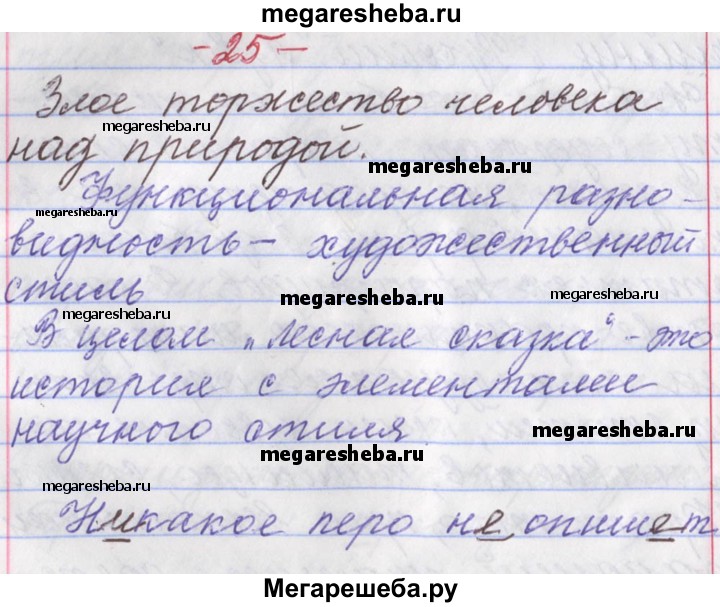 megaresheba.ru
-25-
Злое торжество человека
megaresheba.ru
над природой.
megaresheba.ru
Функциональная разно-
megaresheba.ru
видность - художественный
стиль
megaresheba.ru
megaresheba.ru
megaresheba.ru
В целом „Лесная сказка“ - это
история с элементами
научного стиля
megaresheba.ru
megaresheba.ru
megaresheba.ru
Никакое перо не опишет
Мегарешеба.ру